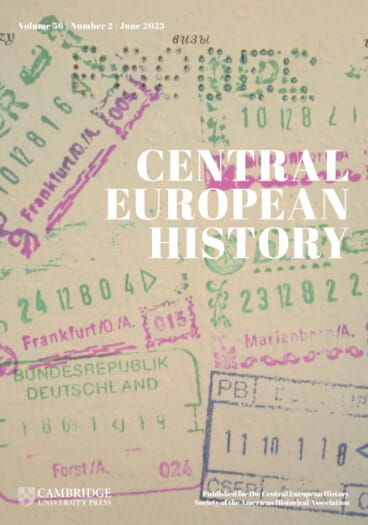 Volume 56 | Number 2 | June 2023
визы
10 12 8
004
Frankfurt/O./A.
CENTRAL
EUROPEAN
HISTORY
24 12 80 4
015
Frankfurt/O./A.
23 12 82 2
Marienborn/A.
BUNDESREPUBLIK
DEUTSCHLAND
Forst/A.
024
PB
11 10 11 8
CSFR
CAMBRIDGE
UNIVERSITY PRESS
Published for the Central European History
Society of the American Historical Association